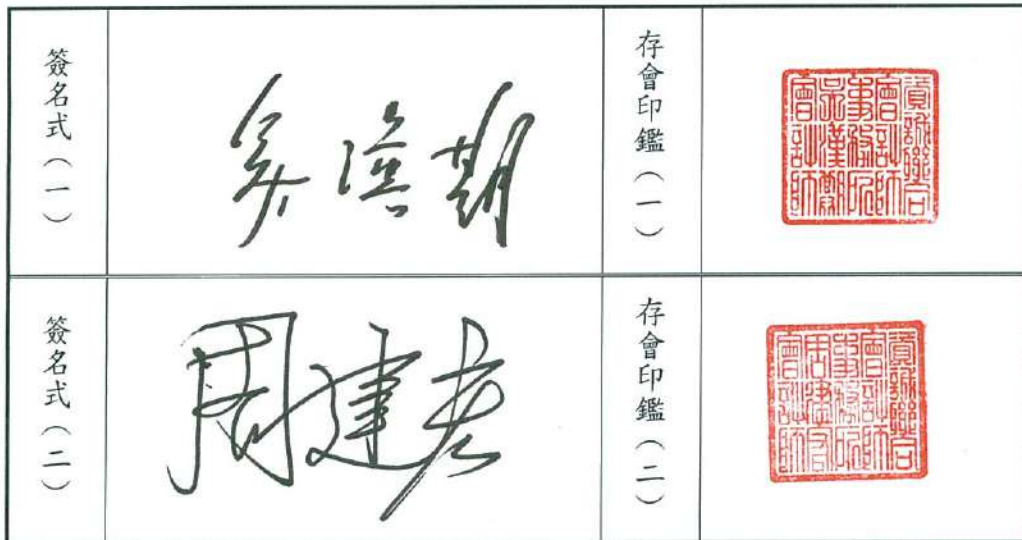 簽名式（一）
吳漢期
存會印鑑（一）
資誠聯合
會計師
事務所
吳漢期
會計師
簽名式（二）
周建宏
存會印鑑（二）
資誠聯合
會計師
事務所
周建宏
會計師